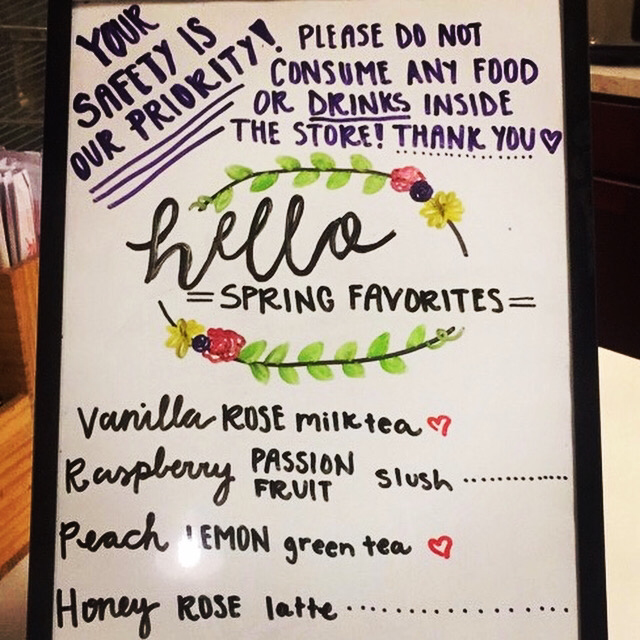 YOUR
SAFETY IS
OUR PRIORITY!
PLEASE DO NOT
CONSUME ANY FOOD
OR DRINKS INSIDE
THE STORE! THANK YOU ♡
hello
=SPRING FAVORITES=
Vanilla ROSE milk tea ♡
Raspberry PASSION FRUIT slush .............
Peach LEMON green tea ♡
Honey ROSE latte ...................